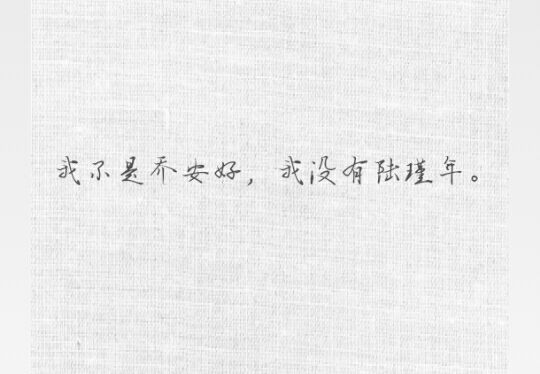 我不是乔安好，我没有陆瑾年。